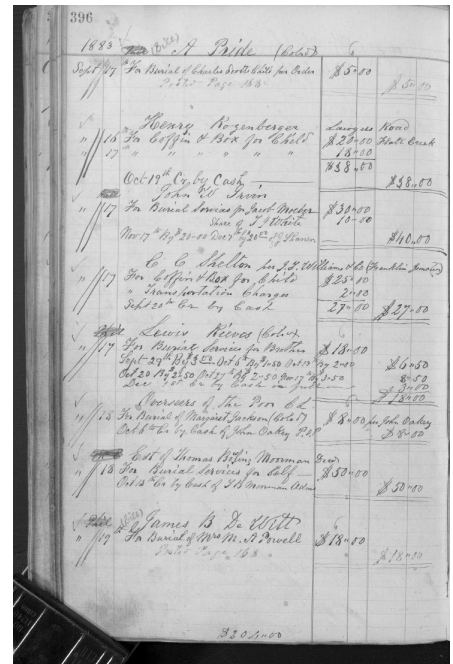 396
1883 (Bike) A Pride (Cold)
Sept 17 For Burial of Charles per Order $5.00
Posted Page 168 $5.00
Henry Rozenberger Road
" 16 For Coffin & Box for Child $20.00 Flat Creek
" 17 " " " " " 18.00
$38.00
Oct 19th Cr. by Cash $38.00
John W Irvin
" 17 For Burial Services for Jacob $30.00
Share of White 10.00
Nov 17th By $20.00 Dec 7th By 20.00 $40.00
C C Shelton per J. T. Williams & Co (Franklin
" 17 For Coffin & Box for Child $25.00
" Transportation Charges 2.00
Sept 20th Cr by Cash 27.00 $27.00
Lewis Reeves (Cold)
" 17 For Burial Service for Brother $18.00
Sept 29th By Oct 6th By 1.50 Oct 13th By 2.00 $6.50
Oct 20 By 2.50 Oct 27th By 2.50 Nov 17th By 3.50 8.50
Dec Cr by Cash in full 3.00
$18.00
Overseers of the Poor
" 18 For Burial of Margaret Jackson (Cold) $8.00 per John Oakey
Oct 6th Cr by Cash of John Oakey $8.00
Est of Thomas Moorman Decd
" 18 For Burial Services for Self $50.00
Oct 13th Cr by Cash of Moorman Adm $50.00
James B De Witt
" 19 For Burial of Mrs M. A Powell $18.00
Posted Page 168 $18.00
$204.00